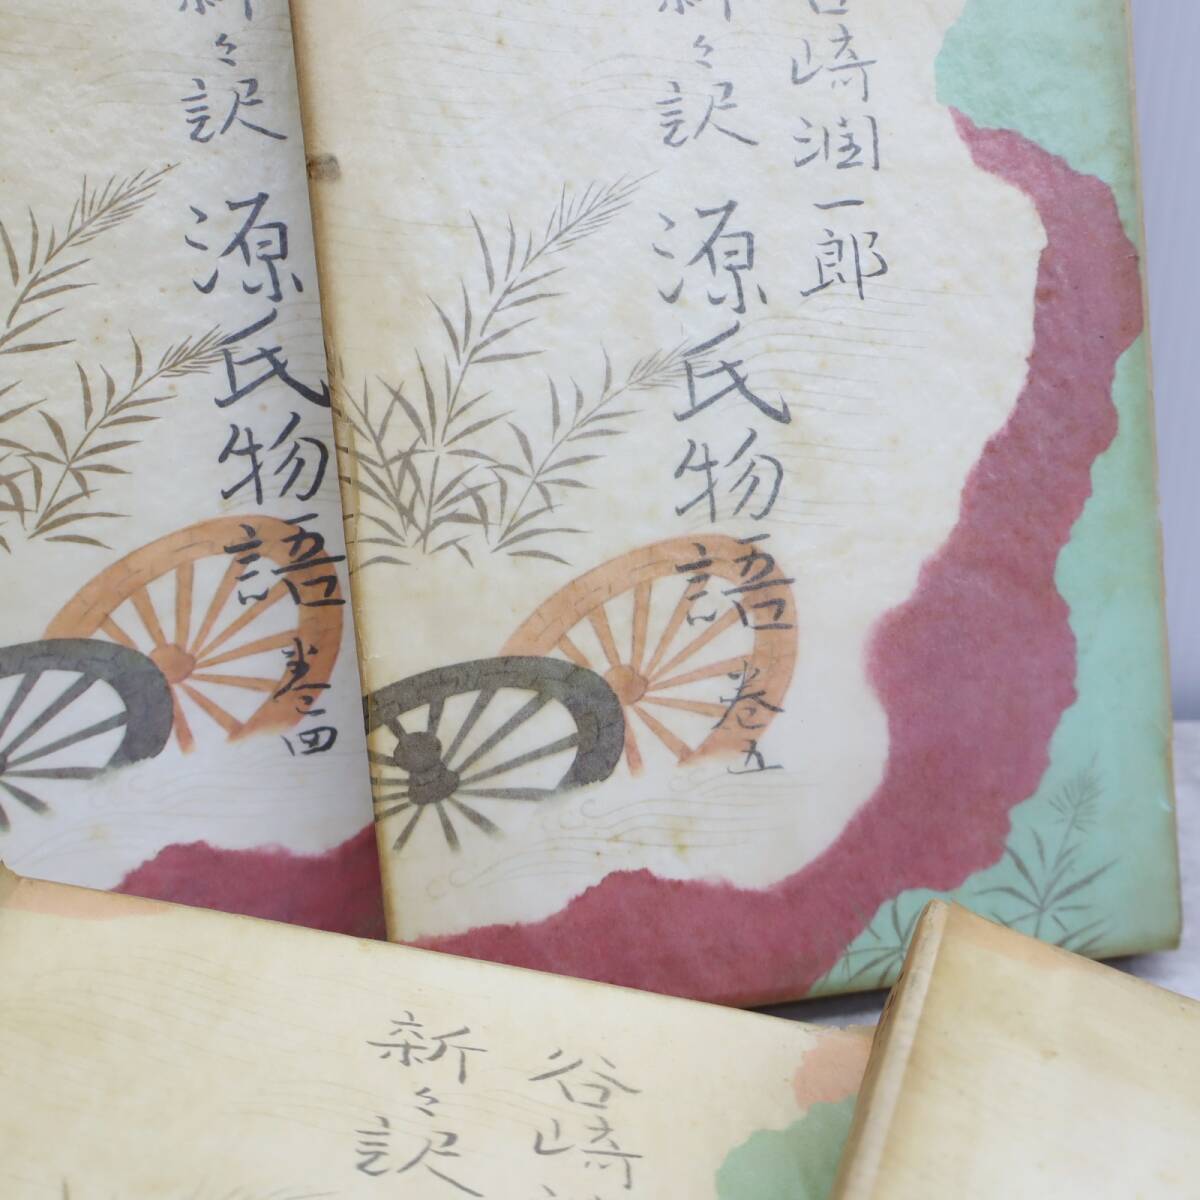 谷崎潤一郎
新々訳
源氏物語
巻五
新々訳
源氏物語
巻四
谷崎
新々訳